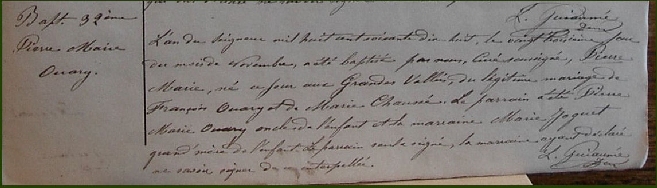 L. Guiaumé
Bapt. 39ème
Pierre Marie
Ouary.
L'an du Seigneur mil huit cent soixante dix huit, le vingt troisième jour
du mois de Novembre, a été baptisé par nous, Curé soussigné, Pierre
Marie, né ce jour aux Grandes Vallées, du légitime mariage de
François Ouary et de Marie Chaussée. Le parrain a été Pierre
Marie Ouary oncle de l'enfant et la marraine Marie Joguet
grand'mère de l'enfant. Le parrain seul a signé, la marraine ayant déclaré
ne savoir signer de interpellée.
L. Guiaumé